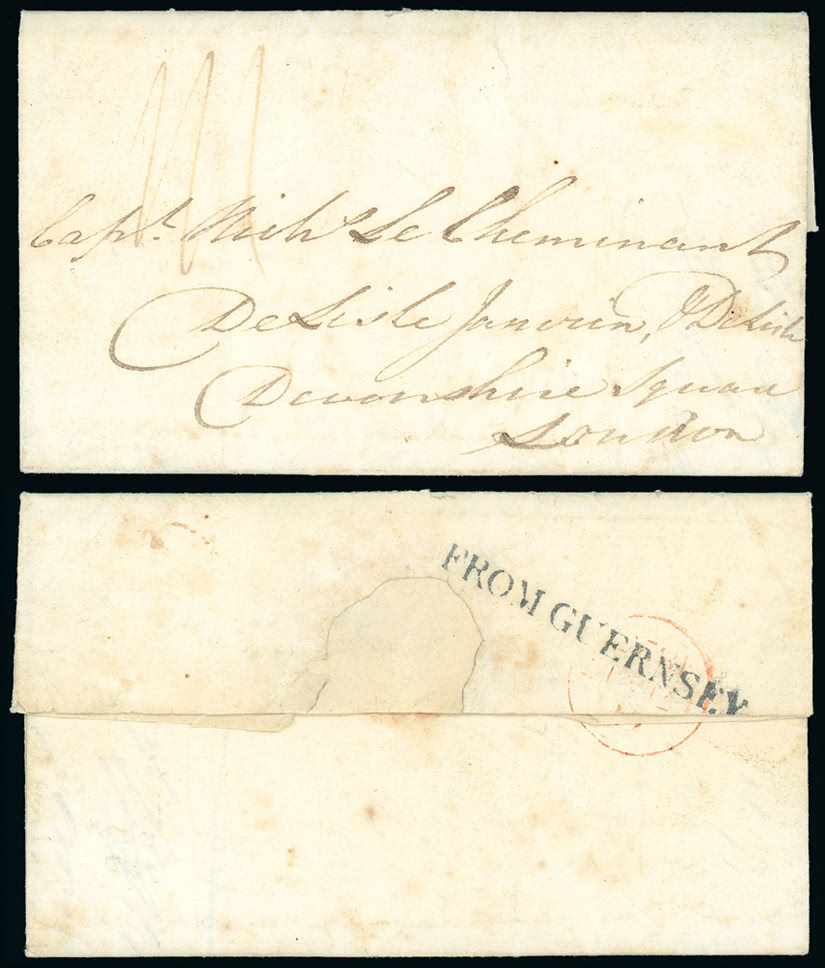 Capt. Nichs Le Cheminant
De Lisle Janvrin, & De Lisle
Devonshire Square
London
FROM GUERNSEY